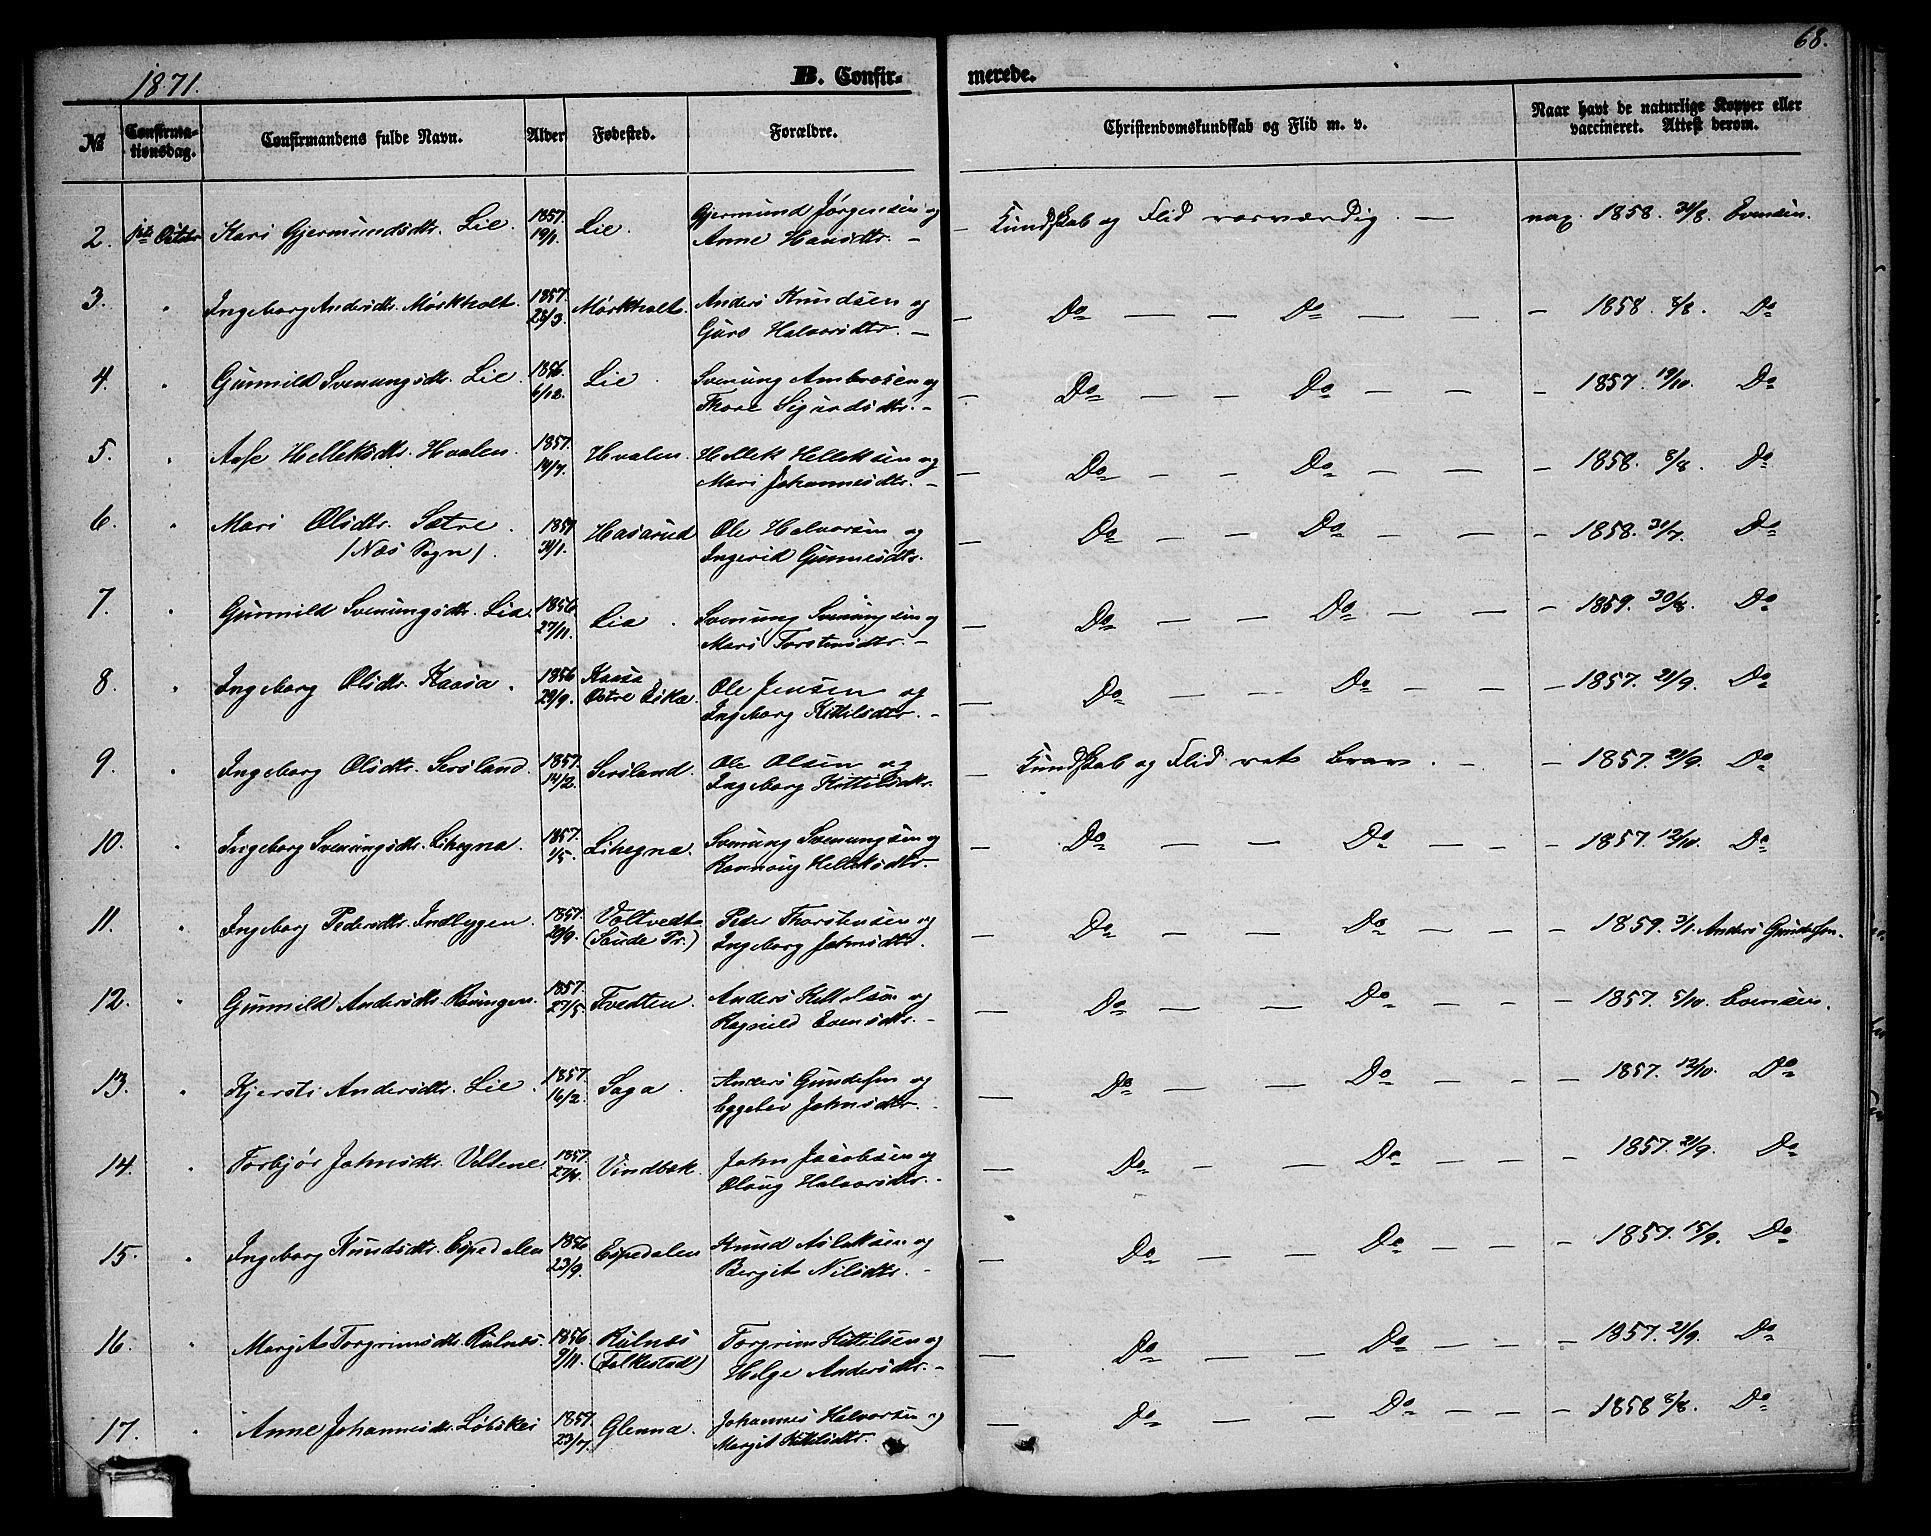 68.
1871.
B. Confir- merede.
No Confirma-tionsdag. Confirmandens fulde Navn. Alder Fødested. Forældre. Christendomskundskab og Flid m. v. Naar havt de naturlige Kopper eller vaccineret. Attest derom.
2. 1ste October Kari Gjermundsdtr. Lie. 1857. 19/1. Lie. Gjermund Jørgensen og Anne Hansdtr. — Kundskab og Flid rosværdig. — vax. 1858. 31/8. Evensen.
3. " Ingeborg Andersdtr. Mørkholt. 1857. 28/3. Mørkholt. Anders Knudsen og Guro Halvorsdtr. — Do — — Do — — 1858 8/8. Do
4. " Gunnild Svenungsdtr. Lie. 1856. 6/12. Lie. Svenung Ambrosen og Thore Sigurdsdtr. — Do — — Do — — 1857. 19/10. Do
5. " Aase Helleksdtr. Hvalen. 1857. 14/7. Hvalen. Hellek Helleksen og Mari Johannesdtr. — Do — — Do — — 1858. 8/8. Do
6. " Mari Olsdtr. Sætre. /Næs Sogn/. 1857 31/1. Hasarud Ole Halvorsen og Ingerid Gunnesdtr. — Do — — Do — — 1858. 30/7. Do
7. " Gunnild Svenungsdtr. Lia. 1856. 27/11. Lia. Svenung Svenungsen og Mari Torstensdtr. — Do — — Do — — 1859. 30/8. Do
8. " Ingeborg Olsdtr. Kaasa. 1856 29/9. Kaasa Østre Eika. Ole Jensen og Ingeborg Kittilsdtr. — Do — — Do — — 1857. 21/9. Do
9. " Ingeborg Olsdtr. Sersland. 1857. 14/2. Sersland. Ole Olsen og Ingeborg Kittilsdtr. — Kundskab og Flid ret brav. — — 1857. 21/9. Do
10. " Ingeborg Svenungsdtr. Lihegna. 1857. 1/5. Lihegna. Svenung Svenungsen og Rannoug Helleksdtr. — Do — — Do — — 1857. 12/10. Do
11. " Ingeborg Pedersdtr. Indlæggen. 1857. 29/9. Væltvedt (Saude Pr.) Peder Thorstensen og Ingeborg Johnsdtr. — Do — — Do — — 1859. 3/1. Anders Gundersen.
12. " Gunnild Andersdtr. Rauingen. 1857. 27/5. Tvedten. Anders Kittelsen og Ragnild Evensdtr. — Do — — Do — — 1857. 5/10. Evensen.
13. " Kjersti Andersdtr. Lie. 1857. 16/2. Saga. Anders Gundersen og Eggeleiv Johnsdtr. — Do — — Do — — 1857. 12/10. Do
14. " Torbjør Johnsdtr. Veltene. 1857. 27/4. Vindbæk. John Jacobsen og Olaug Halvorsdtr. — Do — — Do — — 1857. 21/9. Do
15. " Ingeborg Knudsdtr. Espedalen 1856 23/9. Espedalen Knud Aslaksen og Bergit Nilsdtr. — Do — — Do — — 1857. 15/9. Do
16. " Margit Torgrimsdtr. Rulnæs. 1856 9/11. Rulnæs (Folkestad) Torgrim Kittilsen og Helge Andersdtr. — Do — — Do — — 1857. 21/9. Do
17. " Anne Johannesdtr. Løbskei 1857. 23/7. Glenna. Johannes Halvorsen og Margit Kittilsdtr. — Do — — Do — — 1858 8/8. Do